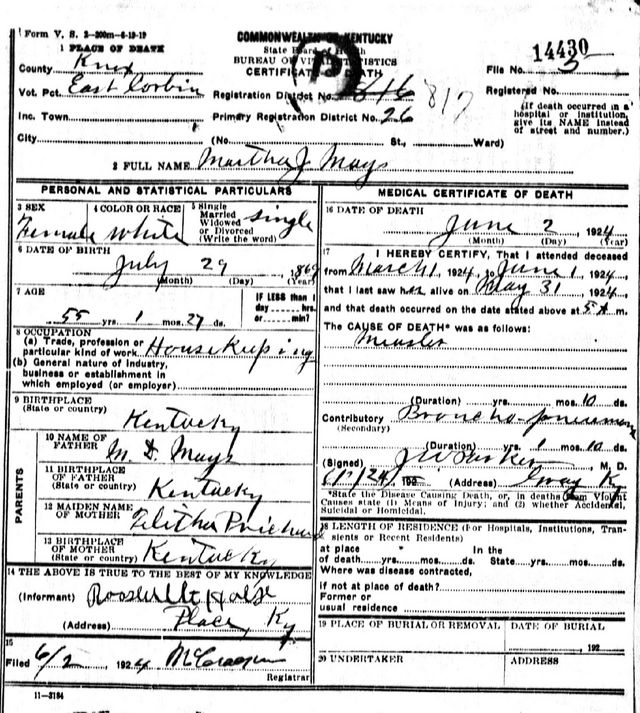 Form V. S. 2-200m-6-19-19
COMMONWEALTH OF KENTUCKY
State Board of Health
BUREAU OF VITAL STATISTICS
CERTIFICATE OF DEATH
1 PLACE OF DEATH
County Knox
File No. 14430
3
Vot. Pct. East Corbin
Registration District No. 816 817
Registered No.
Inc. Town
Primary Registration District No. 26
(If death occurred in a hospital or institution, give its NAME instead of street and number.)
City (No. St., Ward)
2 FULL NAME Martha J Mays
PERSONAL AND STATISTICAL PARTICULARS
3 SEX
Female
4 COLOR OR RACE
White
5 Single
Married
Widowed
or Divorced
(Write the word)
Single
6 DATE OF BIRTH
July 29
(Month) (Day) (Year)
7 AGE
55 yrs. 1 mos. 27 ds.
IF LESS than 1
day hrs.
or min?
8 OCCUPATION
(a) Trade, profession or
particular kind of work Housekeeping
(b) General nature of industry,
business or establishment in
which employed (or employer)
9 BIRTHPLACE
(State or country)
Kentucky
PARENTS
10 NAME OF
FATHER
M. D. Mays
11 BIRTHPLACE
OF FATHER
(State or country)
Kentucky
12 MAIDEN NAME
OF MOTHER
13 BIRTHPLACE
OF MOTHER
(State or country)
Kentucky
14 THE ABOVE IS TRUE TO THE BEST OF MY KNOWLEDGE
(Informant) Roosevelt
(Address) Place, Ky
15
Filed 6/2 1924
Registrar
11-3184
MEDICAL CERTIFICATE OF DEATH
16 DATE OF DEATH
June 2 1924
(Month) (Day) (Year)
17 I HEREBY CERTIFY, That I attended deceased
from March 1, 1924, to June 1, 1924,
that I last saw her alive on May 31 1924,
and that death occurred on the date stated above at 5 A m.
The CAUSE OF DEATH* was as follows:
Measles
(Duration) yrs. mos. 10 ds.
Contributory Broncho-pneumonia
(Secondary)
(Duration) yrs. 1 mos. 10 ds.
(Signed) J W Parker M. D.
192 (Address) Gray Ky
*State the Disease Causing Death, or, in deaths from Violent
Causes state (1) Means of Injury; and (2) whether Accidental,
Suicidal or Homicidal.
18 LENGTH OF RESIDENCE (For Hospitals, Institutions, Tran-
sients or Recent Residents)
at place In the
of death yrs. mos. ds. State yrs. mos. ds.
Where was disease contracted,
if not at place of death?
Former or
usual residence
19 PLACE OF BURIAL OR REMOVAL
DATE OF BURIAL
192
20 UNDERTAKER
ADDRESS